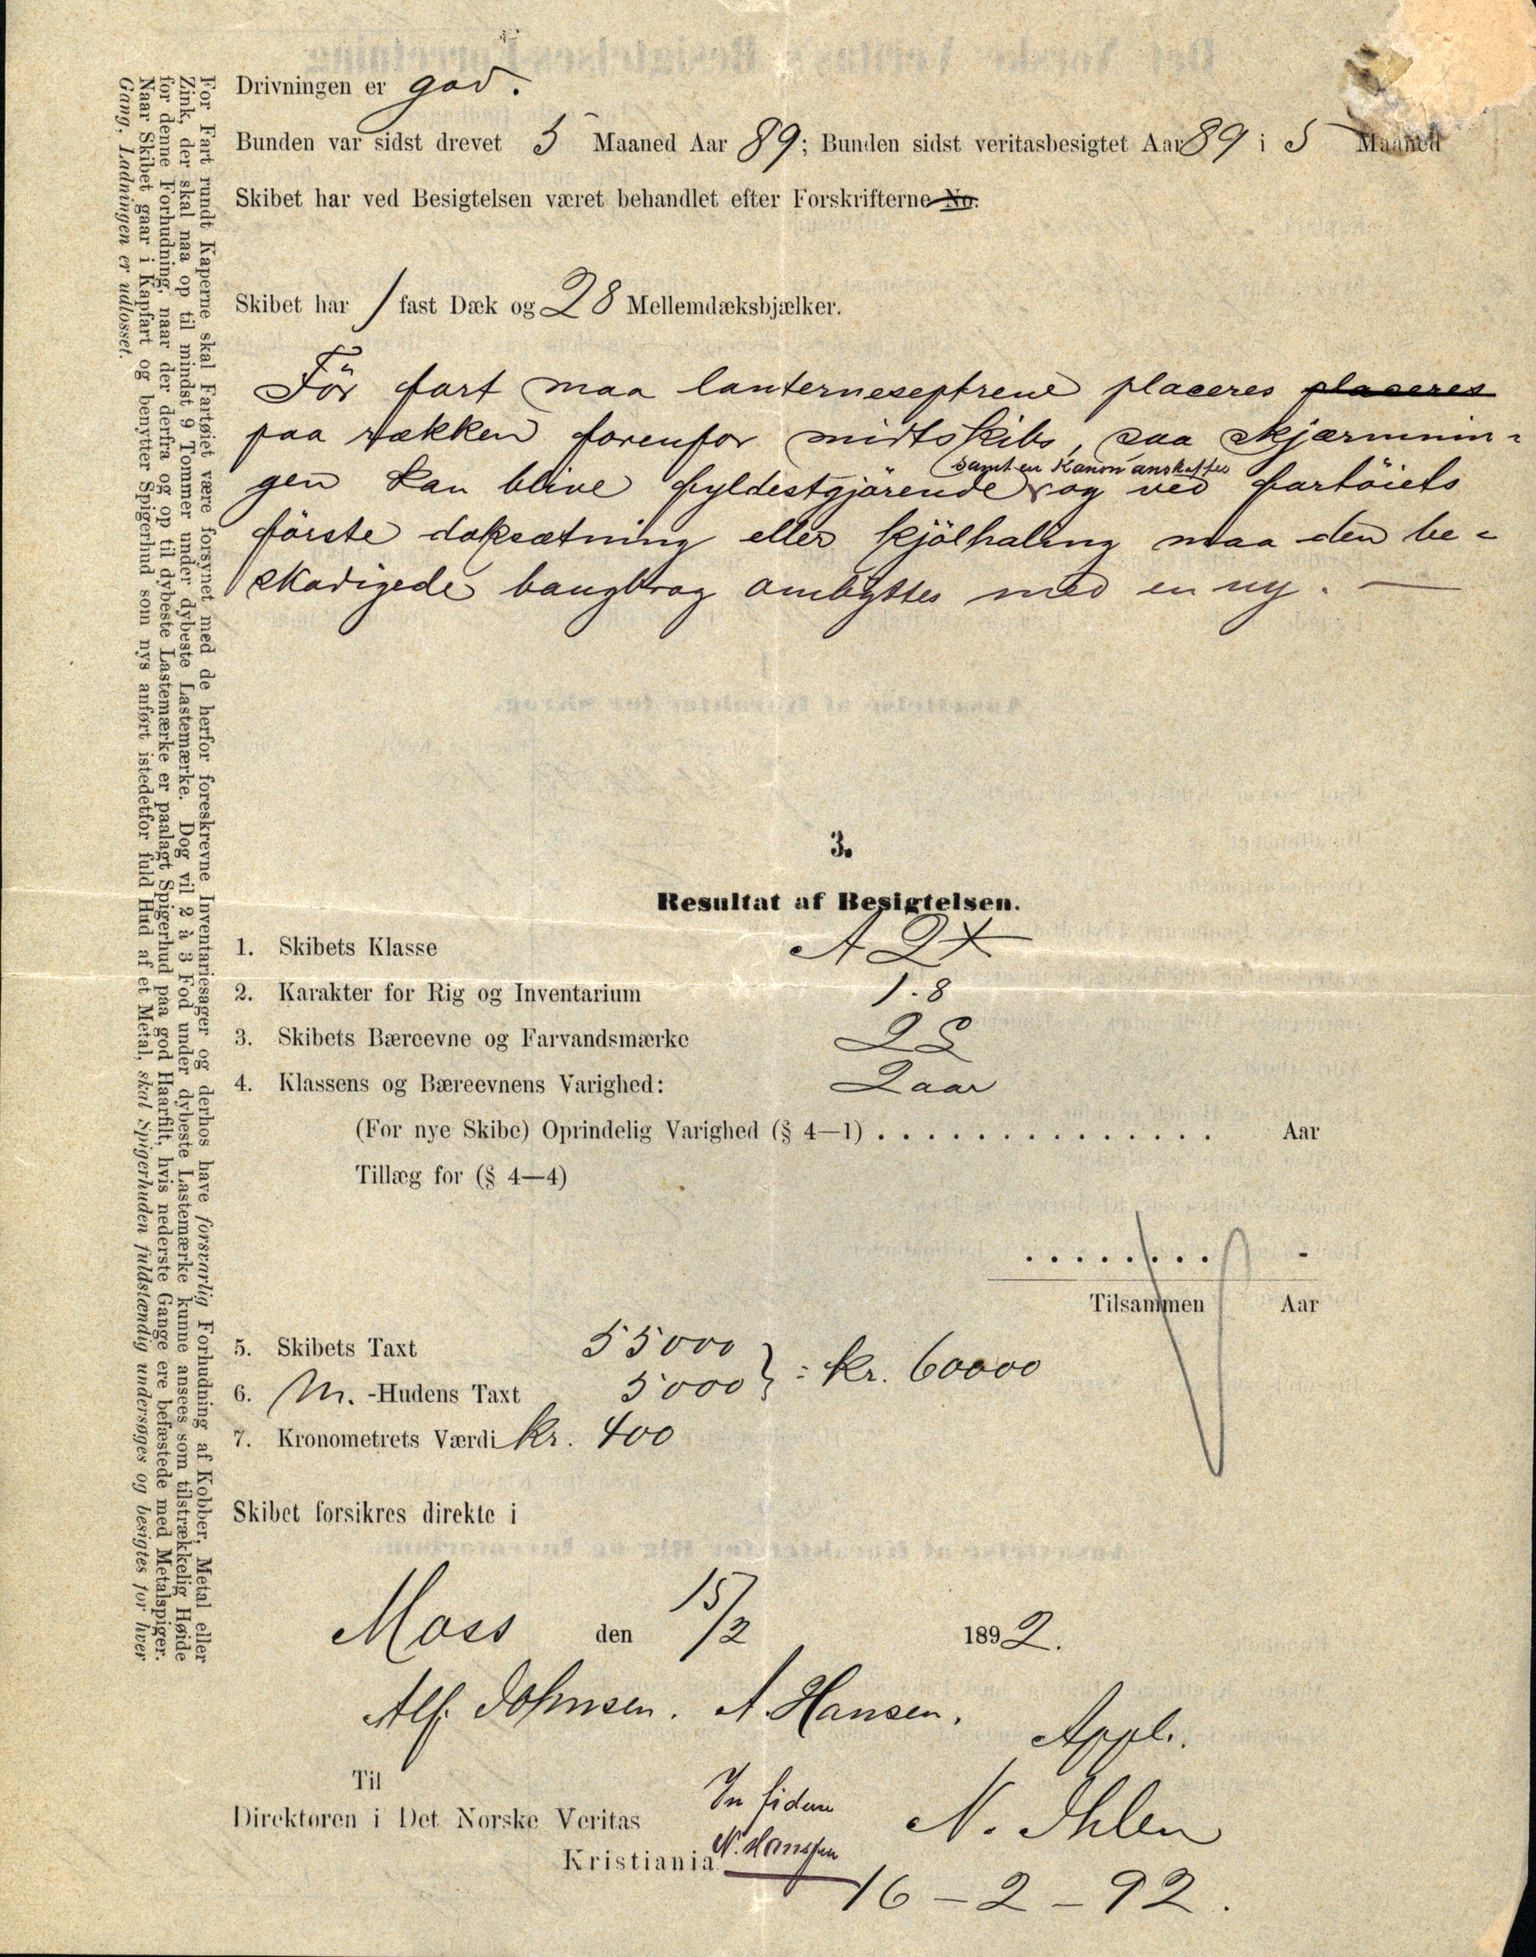 Drivningen er god.
Bunden var sidst drevet 5 Maaned Aar 89; Bunden sidst veritasbesigtet Aar 89 i 5 Maaned
Skibet har ved Besigtelsen været behandlet efter Forskrifterne No.
Skibet har 1 fast Dæk og 28 Mellemdæksbjælker.
För fart maa lanterneseptrene placeres placeres
paa rækken forenfor midtskibs, saa skjærmnin-
samt en Kanon anskaffes
gen kan blive fyldestgjörende og ved fartöiets
förste doksætning eller kjölhaling maa den be-
skadigede baugbrog ombyttes med en ny. —
3.
Resultat af Besigtelsen.
1. Skibets Klasse A 2 +
2. Karakter for Rig og Inventarium 1.8
3. Skibets Bæreevne og Farvandsmærke 2 S
4. Klassens og Bæreevnens Varighed: 2 aar
(For nye Skibe) Oprindelig Varighed (§ 4—1) . . . . . . . . . . . . . . . Aar
Tillæg for (§ 4—4)
. . . . . . . . -
Tilsammen Aar
5. Skibets Taxt 55000
6. M. -Hudens Taxt 5000 } : kr. 60000
7. Kronometrets Værdi kr. 400
Skibet forsikres direkte i
Moss den 15/2 1892.
Alf. Johnsen. A. Hansen. Appl.
Til
Direktøren i Det Norske Veritas
Kristiania
In fidem
N. Hanssen
N. Ihlen
16-2-92.
For Fart rundt Kaperne skal Fartøiet være forsynet med de herfor foreskrevne Inventariesager og derhos have forsvarlig Forhudning af Kobber, Metal eller
Zink, der skal naa op til mindst 9 Tommer under dybeste Lastemærke. Dog vil 2 à 3 Fod under dybeste Lastemærke kunne ansees som tilstrækkelig Høide
for denne Forhudning, naar der derfra og op til dybeste Lastemærke er paalagt Spigerhud paa god Haarfilt, hvis nederste Gange ere befæstede med Metalspiger.
Naar Skibet gaar i Kapfart og benytter Spigerhud som nys anført istedetfor fuld Hud af et Metal, skal Spigerhuden fuldstændig undersøges og besigtes for hver
Gang, Ladningen er udlosset.